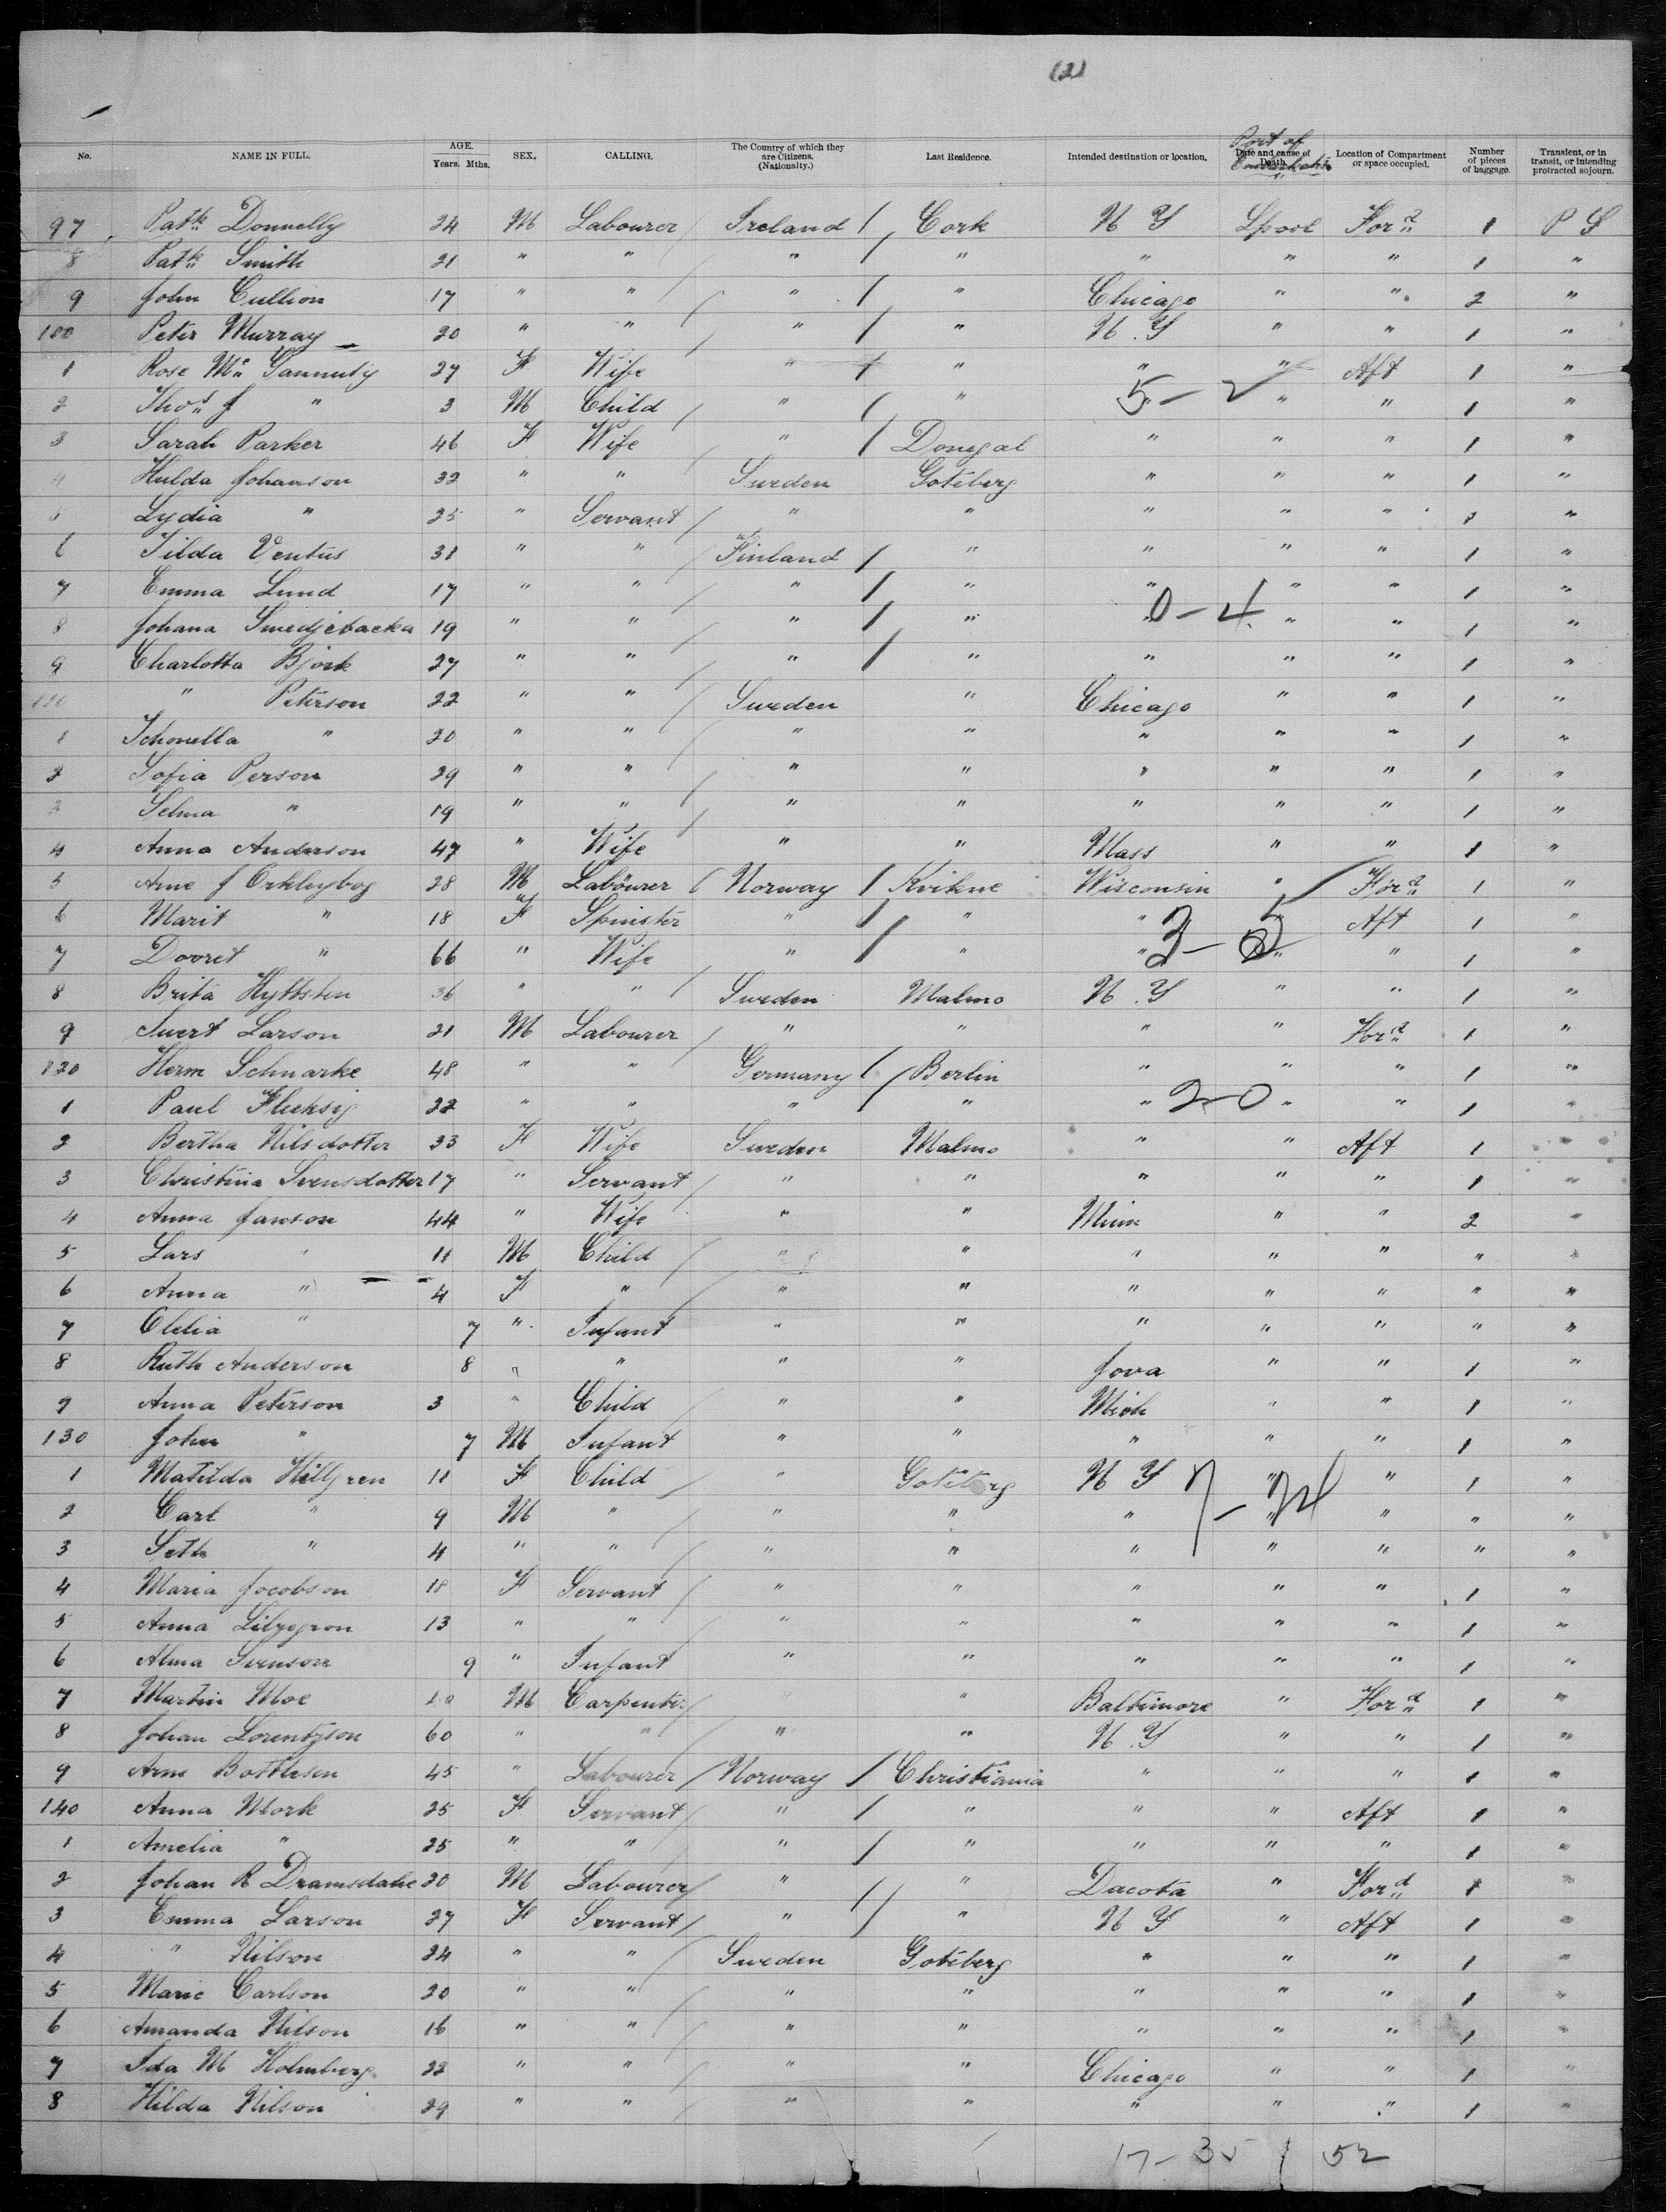 (2)
No. NAME IN FULL. AGE. Years. Mths. SEX. CALLING. The Country of which they are Citizens. (Nationalty.) Last Residence. Intended destination or location. Date and cause of Death. Port of Embarkation Location of Compartment or space occupied. Number of pieces of baggage. Transient, or in transit, or intending protracted sojourn.
97 Patk Donnelly 24 M Labourer Ireland Cork N Y Lpool Ford 1 P S
8 Patk Smith 21 " " " " " " " 1 "
9 John Cullion 17 " " " " Chicago " " 2 "
100 Peter Murray 20 " " " " N.Y " " 1 "
1 Rose Mc Gannuty 27 F Wife " " " " Aft 1 "
2 Thos J " 3 M Child " " " " " 1 "
5 - 2
3 Sarah Parker 46 F Wife " Donegal " " " 1 "
4 Hulda Johanson 32 " " Sweden Goteberg " " " 1 "
5 Lydia " 25 " Servant " " " " " 1 "
6 Tilda Ventus 31 " " Finland " " " " 1 "
7 Emma Lund 17 " " " " " " " 1 "
0 - 4
8 Johana Smedjebacka 19 " " " " " " " 1 "
9 Charlotta Bjork 27 " " " " " " " 1 "
110 " Peterson 22 " " Sweden " Chicago " " 1 "
1 Ichonella " 20 " " " " " " " 1 "
2 Sofia Person 29 " " " " " " " 1 "
3 Selma " 19 " " " " " " " 1 "
4 Anna Anderson 47 " Wife " " Mass " " 1 "
5 Arne J Orkleybog 28 M Labourer Norway Kvikne Wisconsin " Ford 1 "
6 Marit " 18 F Spinster " " " " Aft 1 "
7 Dorret " 66 " Wife " " " " " 1 "
3 -
8 Brita Hyttsten 36 " " Sweden Malmo N.Y " " 1 "
9 Swert Larson 21 M Labourer " " " " Ford 1 "
120 Herm Schnarke 48 " " Germany Berlin " " " 1 "
1 Paul Flueksig 22 " " " " " " " 1 "
2-0
2 Bertha Nilsdotter 33 F Wife Sweden Malmo " " Aft 1 "
3 Christina Svensdotter 17 " Servant " " " " " 1 "
4 Anna Janson 44 " Wife " " Minn " " 2 "
5 Lars " 11 M Child " " " " " " "
6 Anna " 4 F " " " " " " " "
7 Olelia " 7 " Infant " " " " " " "
8 Ruth Anderson 8 " " " " Jova " " 1 "
9 Anna Peterson 3 " Child " " Mich " " 1 "
130 John " 7 M Infant " " " " " 1 "
1 Matilda Hillgren 11 F Child " Goteberg N Y " " 1 "
7 - 24
2 Carl " 9 M " " " " " " " "
3 Seth " 4 " " " " " " " " "
4 Maria Jocobson 18 F Servant " " " " " 1 "
5 Anna Lilyegron 13 " " " " " " " 1 "
6 Alma Svenson 9 " Infant " " " " " 1 "
7 Martin Moe M Carpenter " " Baltimore " Ford 1 "
8 Johan Lorentzson 60 " " " " N.Y " " 1 "
9 Arne Bottlesen 45 " Labourer Norway Christiania " " " 1 "
140 Anna Mork 25 F Servant " " " " Aft 1 "
1 Amelia " 25 " " " " " " " 1 "
2 Johan R Dramsdahe 20 M Labourer " " Dacota " Ford 1 "
3 Emma Larson 27 F Servant " " N Y " Aft 1 "
4 " Nilson 24 " " Sweden Goteberg " " " 1 "
5 Marie Carlson 20 " " " " " " " 1 "
6 Amanda Nilson 16 " " " " " " " 1 "
7 Ida M Holmberg 22 " " " " Chicago " " 1 "
8 Hilda Nilson 29 " " " " " " " 1 "
17 - 35 / 52